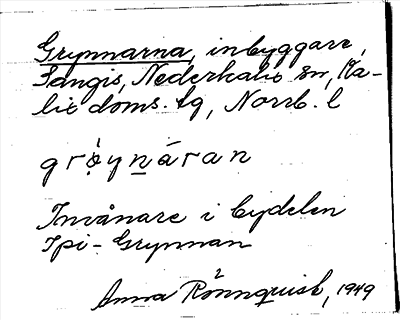 Grynnarna, inbyggare,
Sangis, Nederkalix sn, Ka-
lix doms. tg, Norrb. l
grø̀ynáran
Invånare i bydelen
Ypi-Grynnan
Anna Rönnquist, 1949